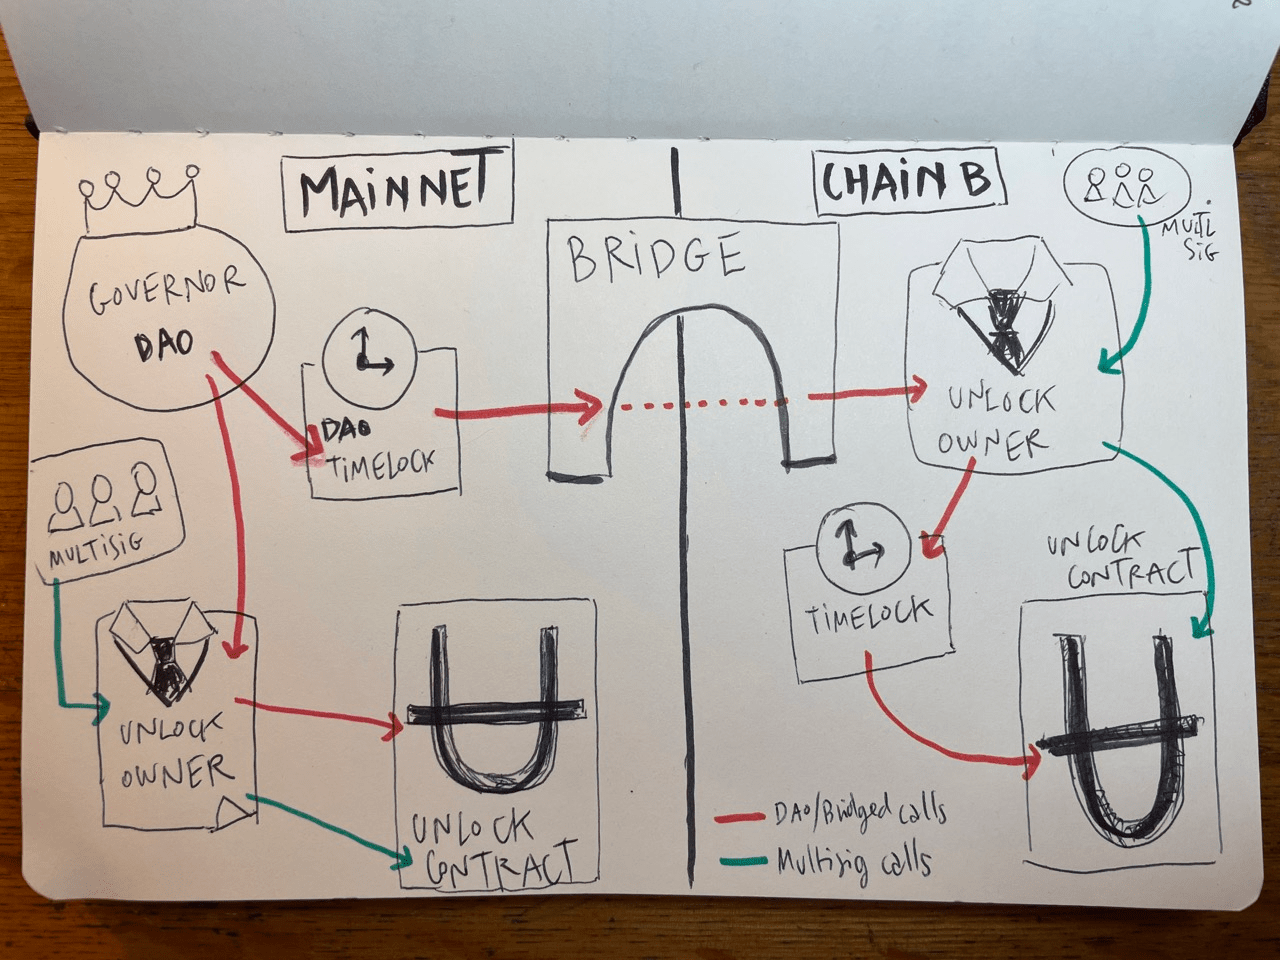 MAINNET
CHAIN B
MULTI
SIG
BRIDGE
GOVERNOR
DAO
DAO
TIMELOCK
UNLOCK
OWNER
MULTISIG
UNLOCK
CONTRACT
TIMELOCK
UNLOCK
OWNER
UNLOCK
CONTRACT
DAO/Bridged calls
Multisig calls